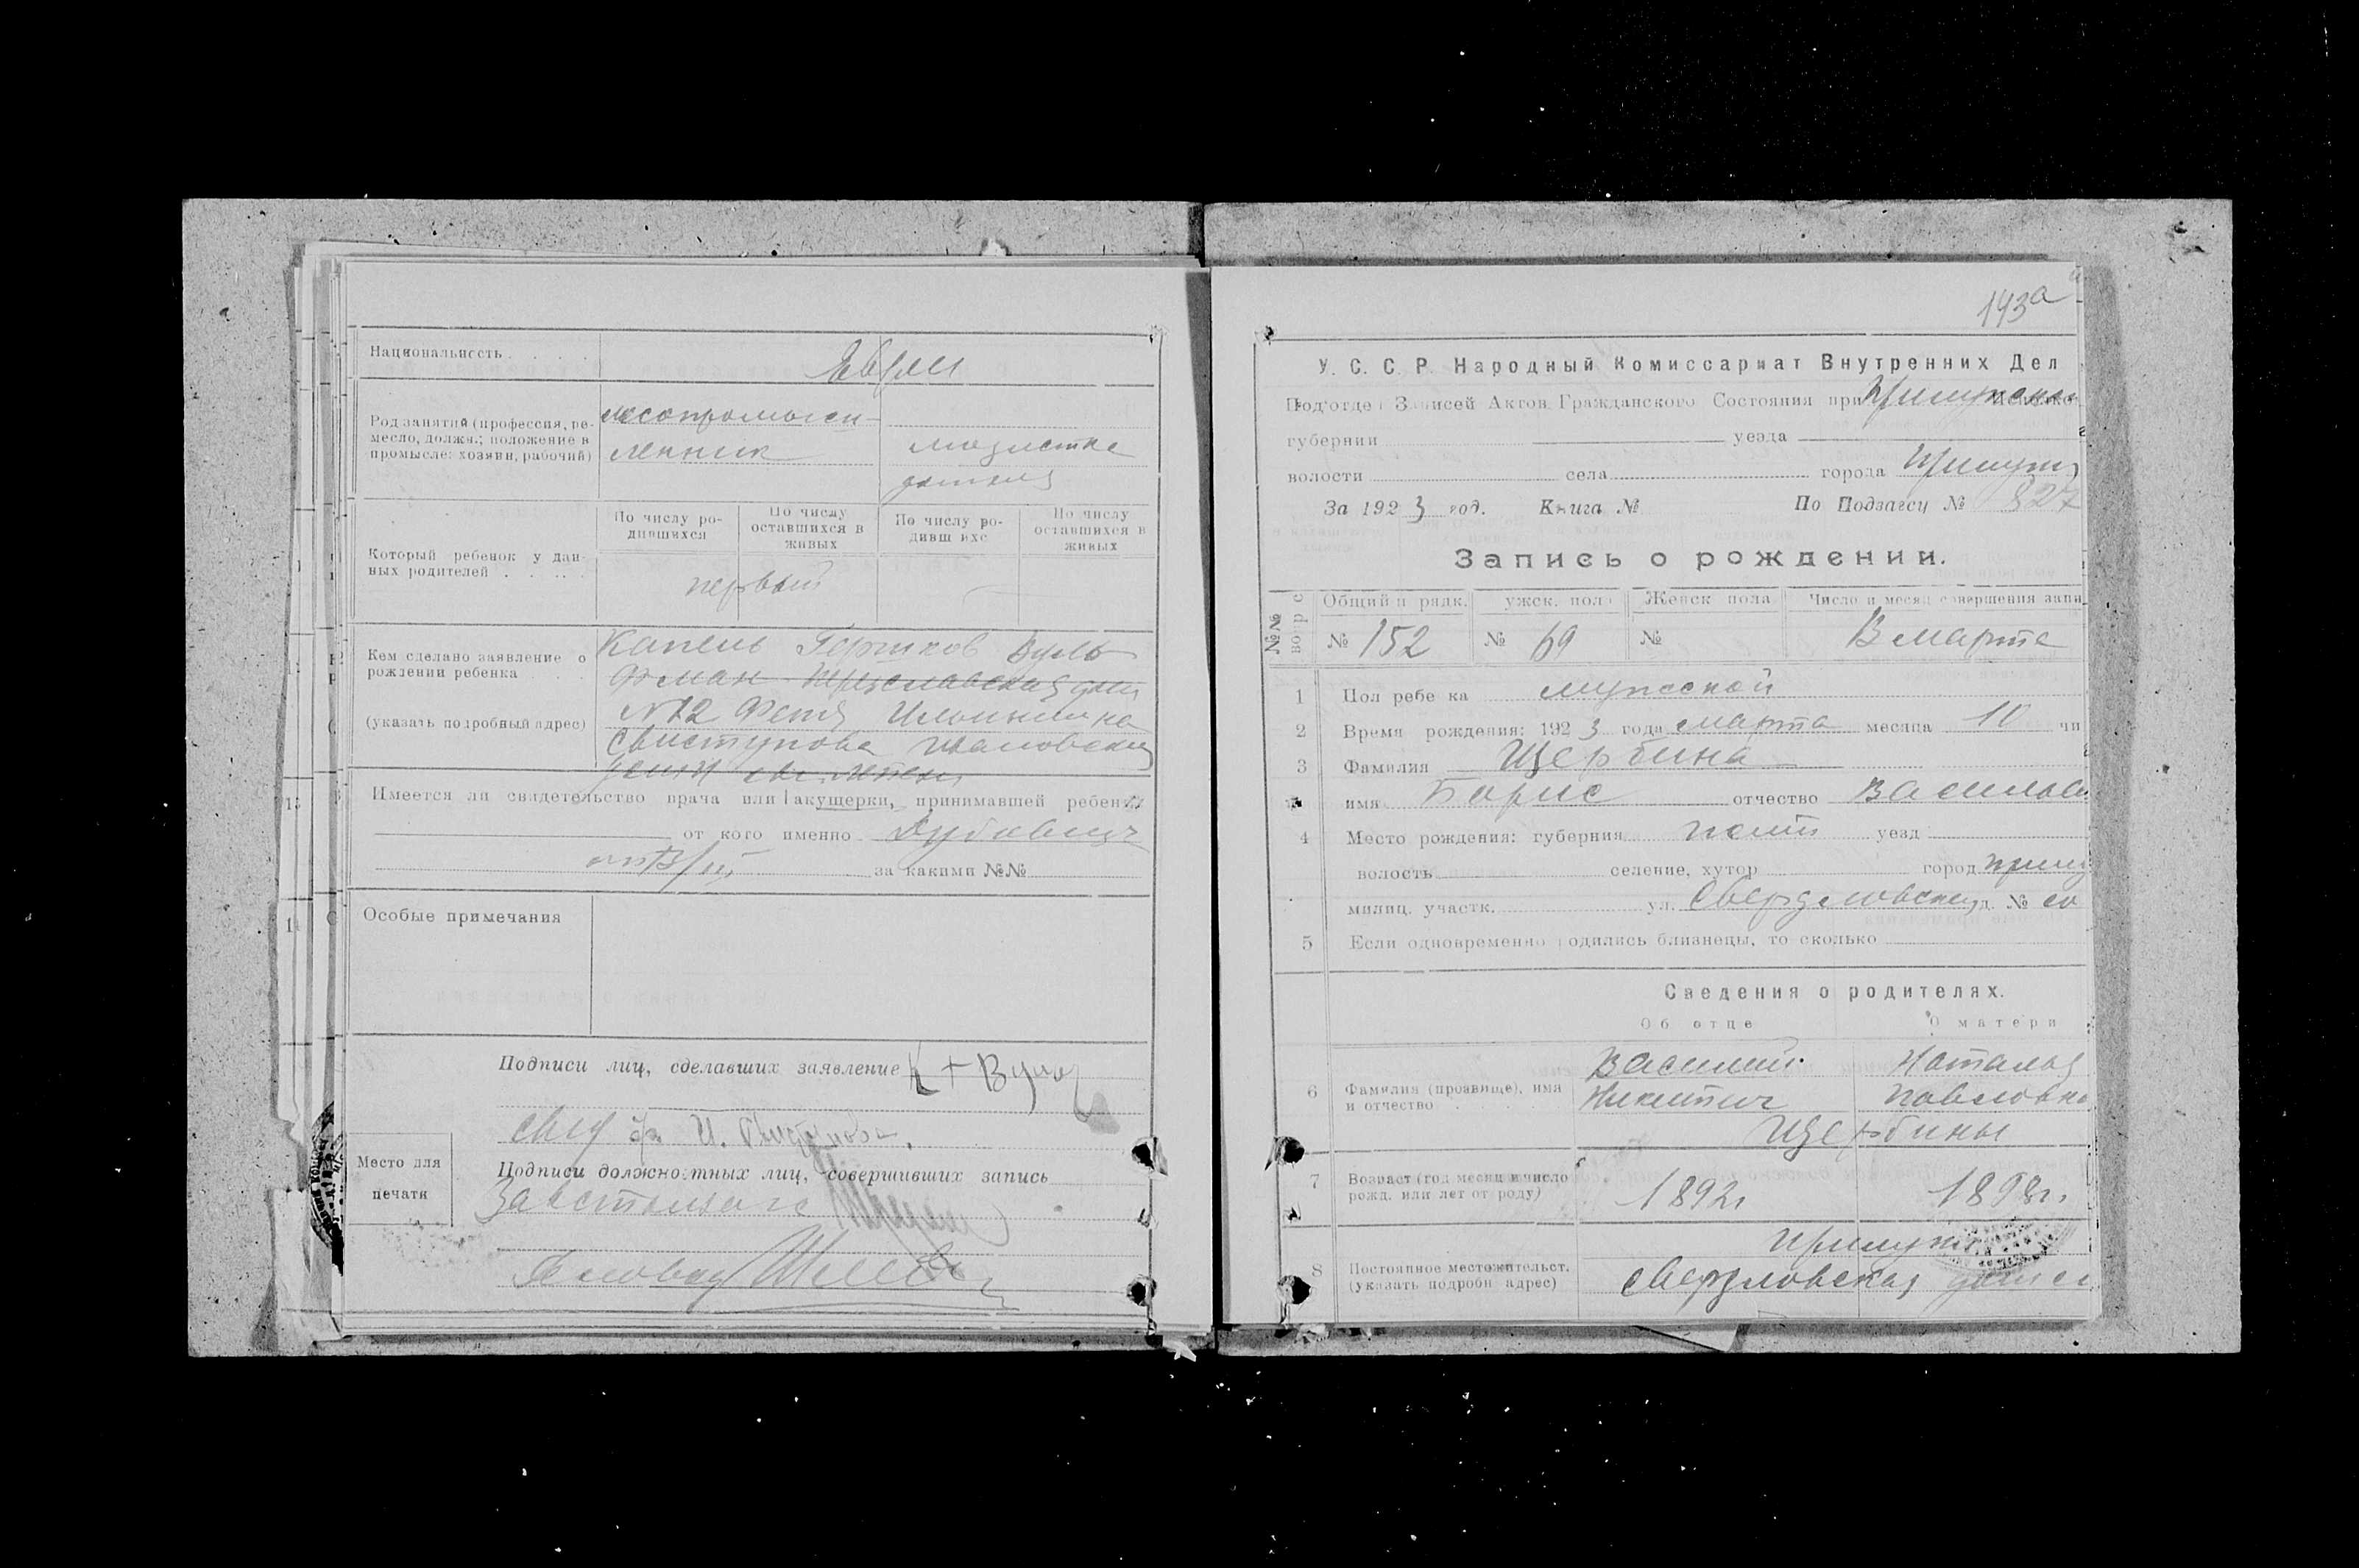 Национальность
Евреи
Род занятий (профессия, ре-
месло, должн.; положение в
промысле: хозяин, рабочий)
лесопромыш-
ленник
модистка
домаш
Который ребенок у дан-
ных родителей
По числу ро-
дившихся
По числу
оставшихся в
живых
По числу ро-
дивш ихс
По числу
оставшихся в
живых
первый
Кем сделано заявление о
рождении ребенка
(указать подробный адрес)
Капель Гершков Вуль
фман
№12 Феня Ильинична
Свистунова Ивановская
Имеется ли свидетельство врача или акушерки, принимавшей ребен
от кого именно Дубович
за какими №№
Особые примечания
Подписи лиц, сделавших заявление К + Вуль
Ф. И. Свистунова.
Место для
печати
Подписи должностных лиц, совершивших запись
Завстолзагс
193а
У. С. С. Р. Народный Комиссариат Внутренних Дел
Под'отдел Записей Актов Гражданского Состояния при
губернии уезда
волости села города
За 1923 год. Книга № По Подзагсу № 827
Запись о рождении.
№№ вопрс
Общий п рядк. ужск. пола Женск пола Число и месяц совершения запи
№ 152 № 69 № 13 марта
1 Пол ребе ка мужской
2 Время рождения: 1923 года марта месяца 10 чи
3 Фамилия Щербина
имя Борис отчество Василье
4 Место рождения: губерния Полт уезд
волость селение, хутор город Прилу
милиц. участк. ул. Свердловская д. № со
5 Если одновременно родились близнецы, то сколько
Сведения о родителях.
Об отце О матери
6 Фамилия (прозвище), имя
и отчество
Василий Наталья
Никитич Павловна
Щербины
7 Возраст (год месяц и число
рожд. или лет от роду)
1892г 1898г.
8 Постоянное местожительст.
(указать подробн адрес)
Прилуки
Свердловская